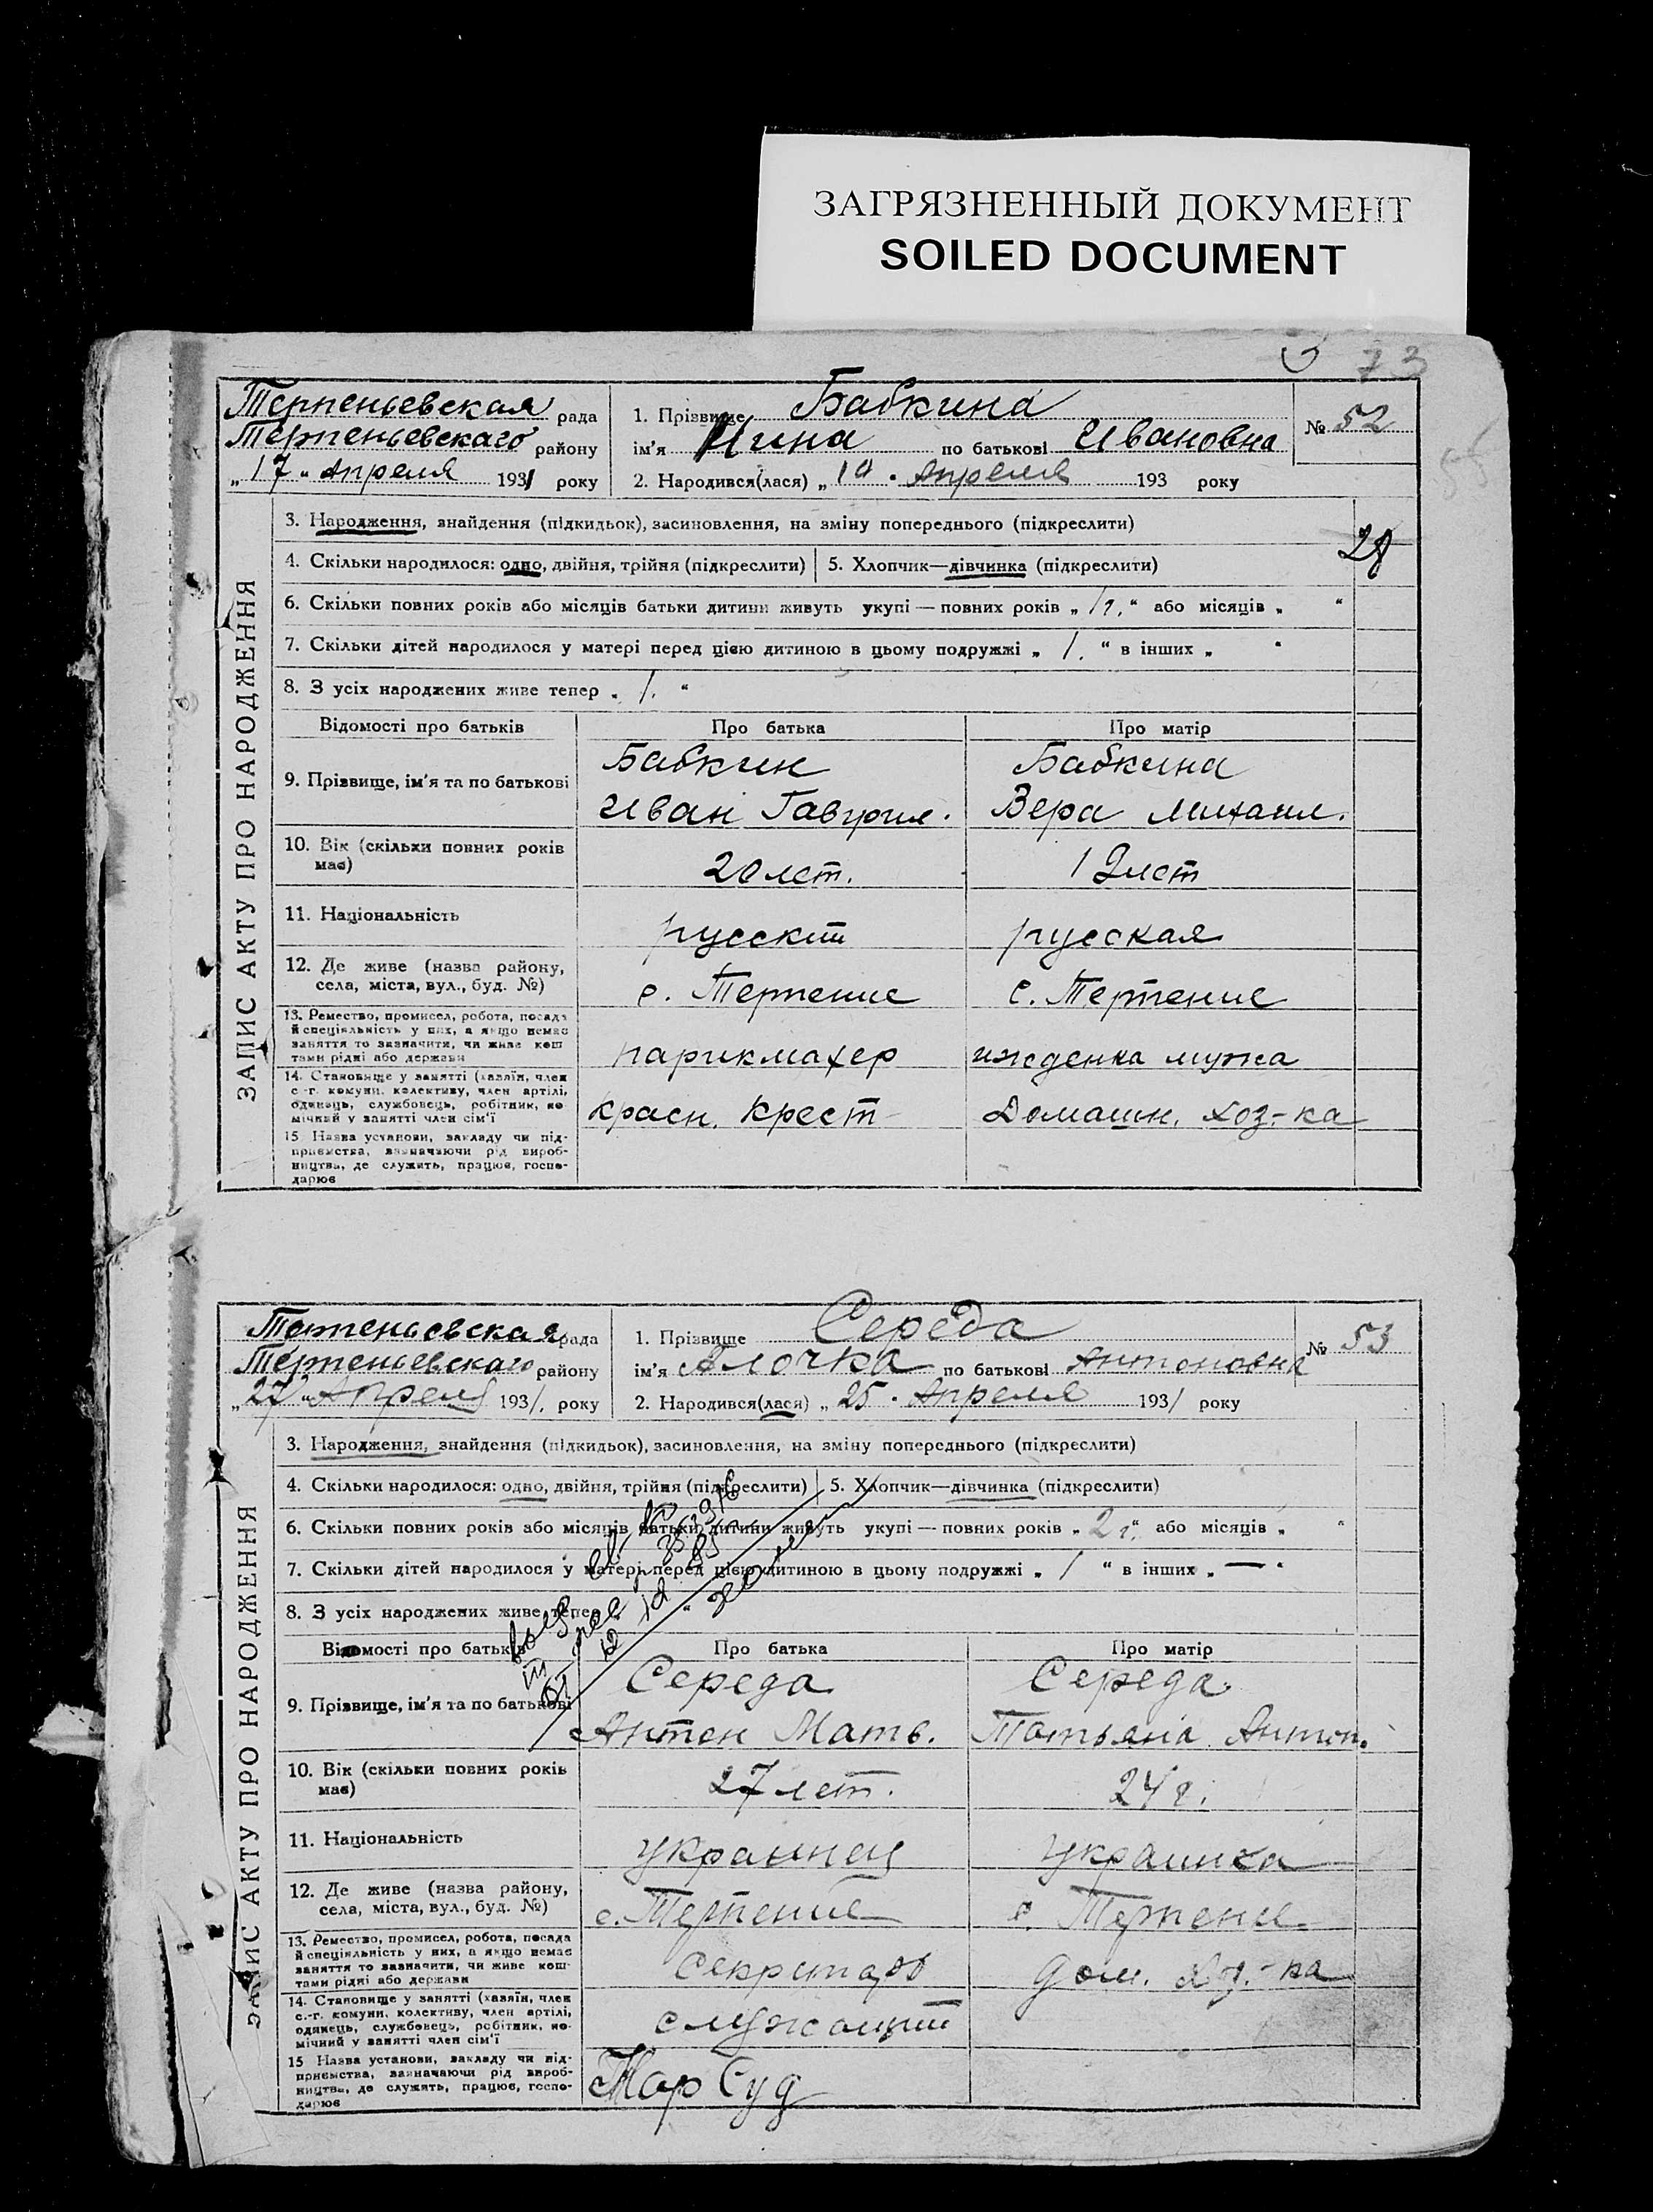 ЗАГРЯЗНЕННЫЙ ДОКУМЕНТ
SOILED DOCUMENT
73
Терпеньевская рада
Терпеньевскаго району
„17" Апреля 1931 року
1. Прізвище Бабкина
ім'я Нина по батькові Ивановна
2. Народився(лася) „ Апреля 193 року
№ 52
ЗАПИС АКТУ ПРО НАРОДЖЕННЯ
3. Народження, знайдення (підкидьок), засиновлення, на зміну попереднього (підкреслити)
4. Скільки народилося: одно, двійня, трійня (підкреслити) 5. Хлопчик—дівчинка (підкреслити)
6. Скільки повних років або місяців батьки дитини живуть укупі — повних років „ 1 г. " або місяців „ "
7. Скільки дітей народилося у матері перед цією дитиною в цьому подружжі „ 1. " в інших „ "
8. З усіх народжених живе тепер „ 1. "
Відомості про батьків Про батька Про матір
9. Прізвище, ім'я та по батькові Бабкин Бабкина
Иван Гаврил. Вера Михаил.
10. Вік (скільки повних років має) 20 лет. 19 лет
11. Національність русский русская
12. Де живе (назва району, села, міста, вул., буд. №) с. Терпение с. Терпение
13. Ремество, промисел, робота, посада й спеціяльність у них, а якщо немає заняття то зазначити, чи живе коштами рідні або держави парикмахер ижденка мужа
14. Становище у занятті (хазяїн, член с.-г. комуни, колективу, член артілі, одинець, службовець, робітник, помічний у занятті член сім'ї красн. Крест Домашн. хоз-ка
15 Назва установи, закладу чи підприємства, зазначаючи рід виробництва, де служить, працює, господарює
Терпеньевская рада
Терпеньевскаго району
„27" Апреля 1931. року
1. Прізвище Середа
ім'я Алочка по батькові Антоновна
2. Народився(лася) „25" Апреля 1931 року
№ 53
ЗАПИС АКТУ ПРО НАРОДЖЕННЯ
3. Народження, знайдення (підкидьок), засиновлення, на зміну попереднього (підкреслити)
4. Скільки народилося: одно, двійня, трійня (підкреслити) 5. Хлопчик—дівчинка (підкреслити)
6. Скільки повних років або місяців батьки дитини живуть укупі — повних років „ 2 г. " або місяців „ "
7. Скільки дітей народилося у матері перед цією дитиною в цьому подружжі „ 1 " в інших „ — "
8. З усіх народжених живе тепер
Відомості про батьків Про батька Про матір
9. Прізвище, ім'я та по батькові Середа Середа
Антон Матв. Татьяна Антон.
10. Вік (скільки повних років має) 27 лет. 24 г.
11. Національність украинец украинка
12. Де живе (назва району, села, міста, вул., буд. №) с. Терпение с. Терпение
13. Ремество, промисел, робота, посада й спеціяльність у них, а якщо немає заняття то зазначити, чи живе коштами рідні або держави секритарь дом. хоз-ка
14. Становище у занятті (хазяїн, член с.-г. комуни, колективу, член артілі, одинець, службовець, робітник, помічний у занятті член сім'ї служащий
15 Назва установи, закладу чи підприємства, зазначаючи рід виробництва, де служить, працює, господарює Нар Суд